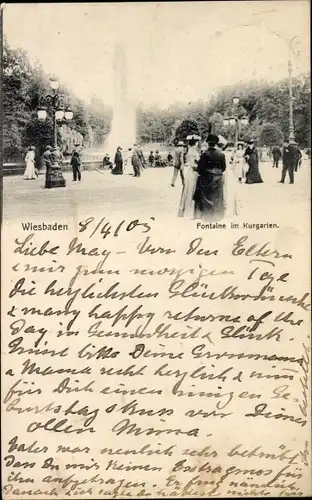 Wiesbaden 8/4/05 Fontaine im Kurgarten.
Liebe May – Von den Eltern
& mir zum morgigen Tage
die herzlichsten Glückwünsche
& many happy returns of the
Day in Gesundheit & Glück.
Grüsse bitte Deine Grossmama
& Mama recht herzlich & nimm
für Dich einen innigen Ge-
burtstagskuss von Deiner
ollen
Vater war neulich sehr betrübt
dass Du mir keinen für
ihn aufgetragen. Er frug
Danach